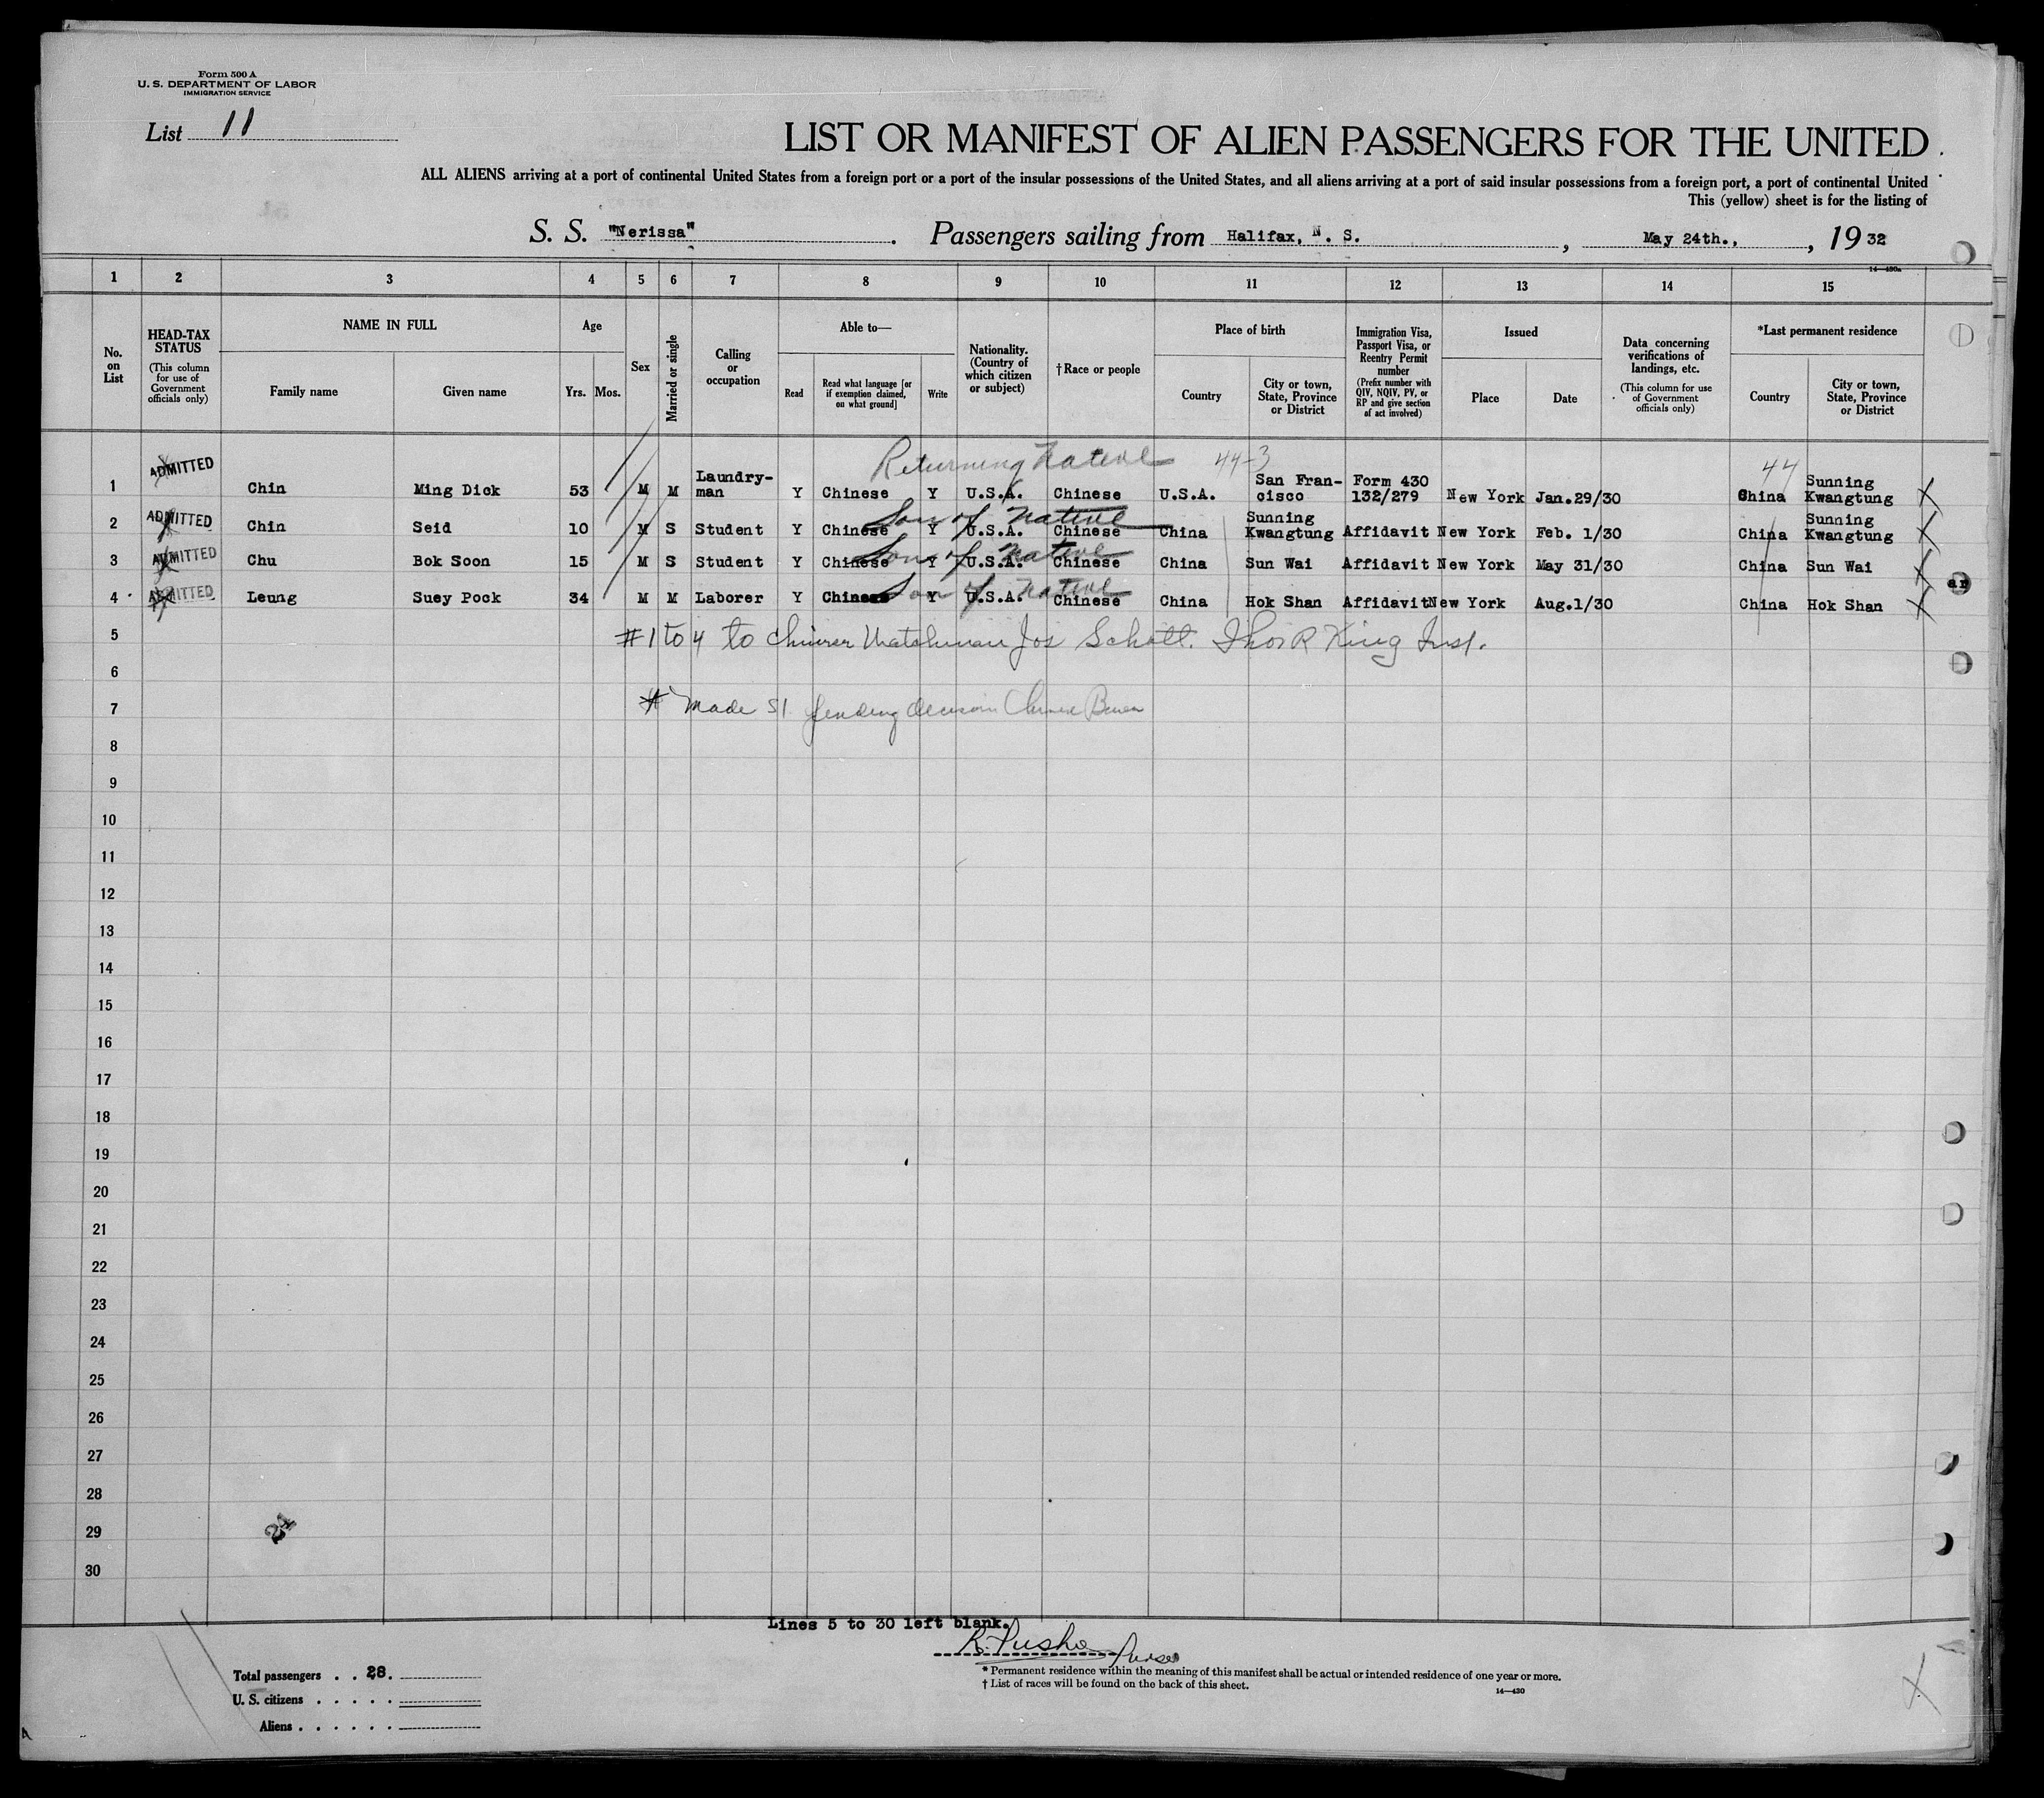 Form 500 A
U. S. DEPARTMENT OF LABOR
IMMIGRATION SERVICE
List 11
LIST OR MANIFEST OF ALIEN PASSENGERS FOR THE UNITED
ALL ALIENS arriving at a port of continental United States from a foreign port or a port of the insular possessions of the United States, and all aliens arriving at a port of said insular possessions from a foreign port, a port of continental United
This (yellow) sheet is for the listing of
S. S. "Nerissa". Passengers sailing from Halifax, N. S., May 24th., , 1932
14—430a
1 2 3 4 5 6 7 8 9 10 11 12 13 14 15
No. on List
HEAD-TAX STATUS (This column for use of Government officials only)
NAME IN FULL
Family name Given name
Age
Yrs. Mos.
Sex
Married or single
Calling or occupation
Able to—
Read Read what language [or if exemption claimed, on what ground] Write
Nationality. (Country of which citizen or subject)
†Race or people
Place of birth
Country City or town, State, Province or District
Immigration Visa, Passport Visa, or Reentry Permit number (Prefix number with QIV, NQIV, PV, or RP and give section of act involved)
Issued
Place Date
Data concerning verifications of landings, etc. (This column for use of Government officials only)
*Last permanent residence
Country City or town, State, Province or District
Returning Native 44-3 44
1 ADMITTED Chin Ming Dick 53 M M Laundry-man Y Chinese Y U.S.A. Chinese U.S.A. San Fran-cisco Form 430 132/279 New York Jan.29/30 China Sunning Kwangtung X
Son of Native
2 ADMITTED Chin Seid 10 M S Student Y Chinese Y U.S.A. Chinese China Sunning Kwangtung Affidavit New York Feb. 1/30 China Sunning Kwangtung X
Son of Native
3 ADMITTED Chu Bok Soon 15 M S Student Y Chinese Y U.S.A. Chinese China Sun Wai Affidavit New York May 31/30 China Sun Wai X
Son of Native
4 ADMITTED Leung Suey Pock 34 M M Laborer Y Chinese Y U.S.A. Chinese China Hok Shan Affidavit New York Aug.1/30 China Hok Shan X
5 #1 to 4 to Chinese Watchman Jos Schatt. R King Insp.
6
7 # Made SI pending decision Chinese
8
9
10
11
12
13
14
15
16
17
18
19
20
21
22
23
24
25
26
27
28
29 24
30
Lines 5 to 30 left blank.
Purser
Total passengers . . 28.
U. S. citizens . . . . .
Aliens . . . . . .
* Permanent residence within the meaning of this manifest shall be actual or intended residence of one year or more.
† List of races will be found on the back of this sheet.
14—430
X